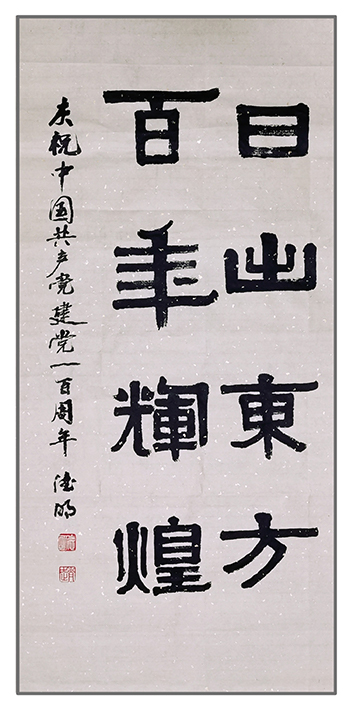 日出東方
百年輝煌
庆祝中国共产党建党一百周年 德明